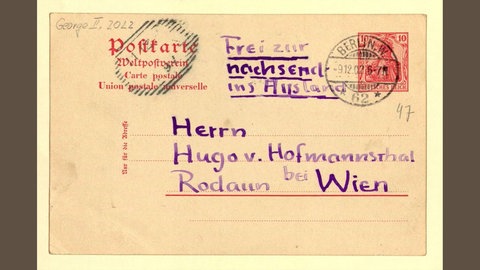 George II, 2022
Postkarte
Weltpostverein
Carte postale
Union postale universelle
Frei zur
nachsend
ins Ausland
BERLIN.W.
9.12.07. 6-7N.
* 62 *
10
DEUTSCHES REICH
47
Nur für die Adresse
Herrn
Hugo v. Hofmannsthal
Rodaun bei Wien